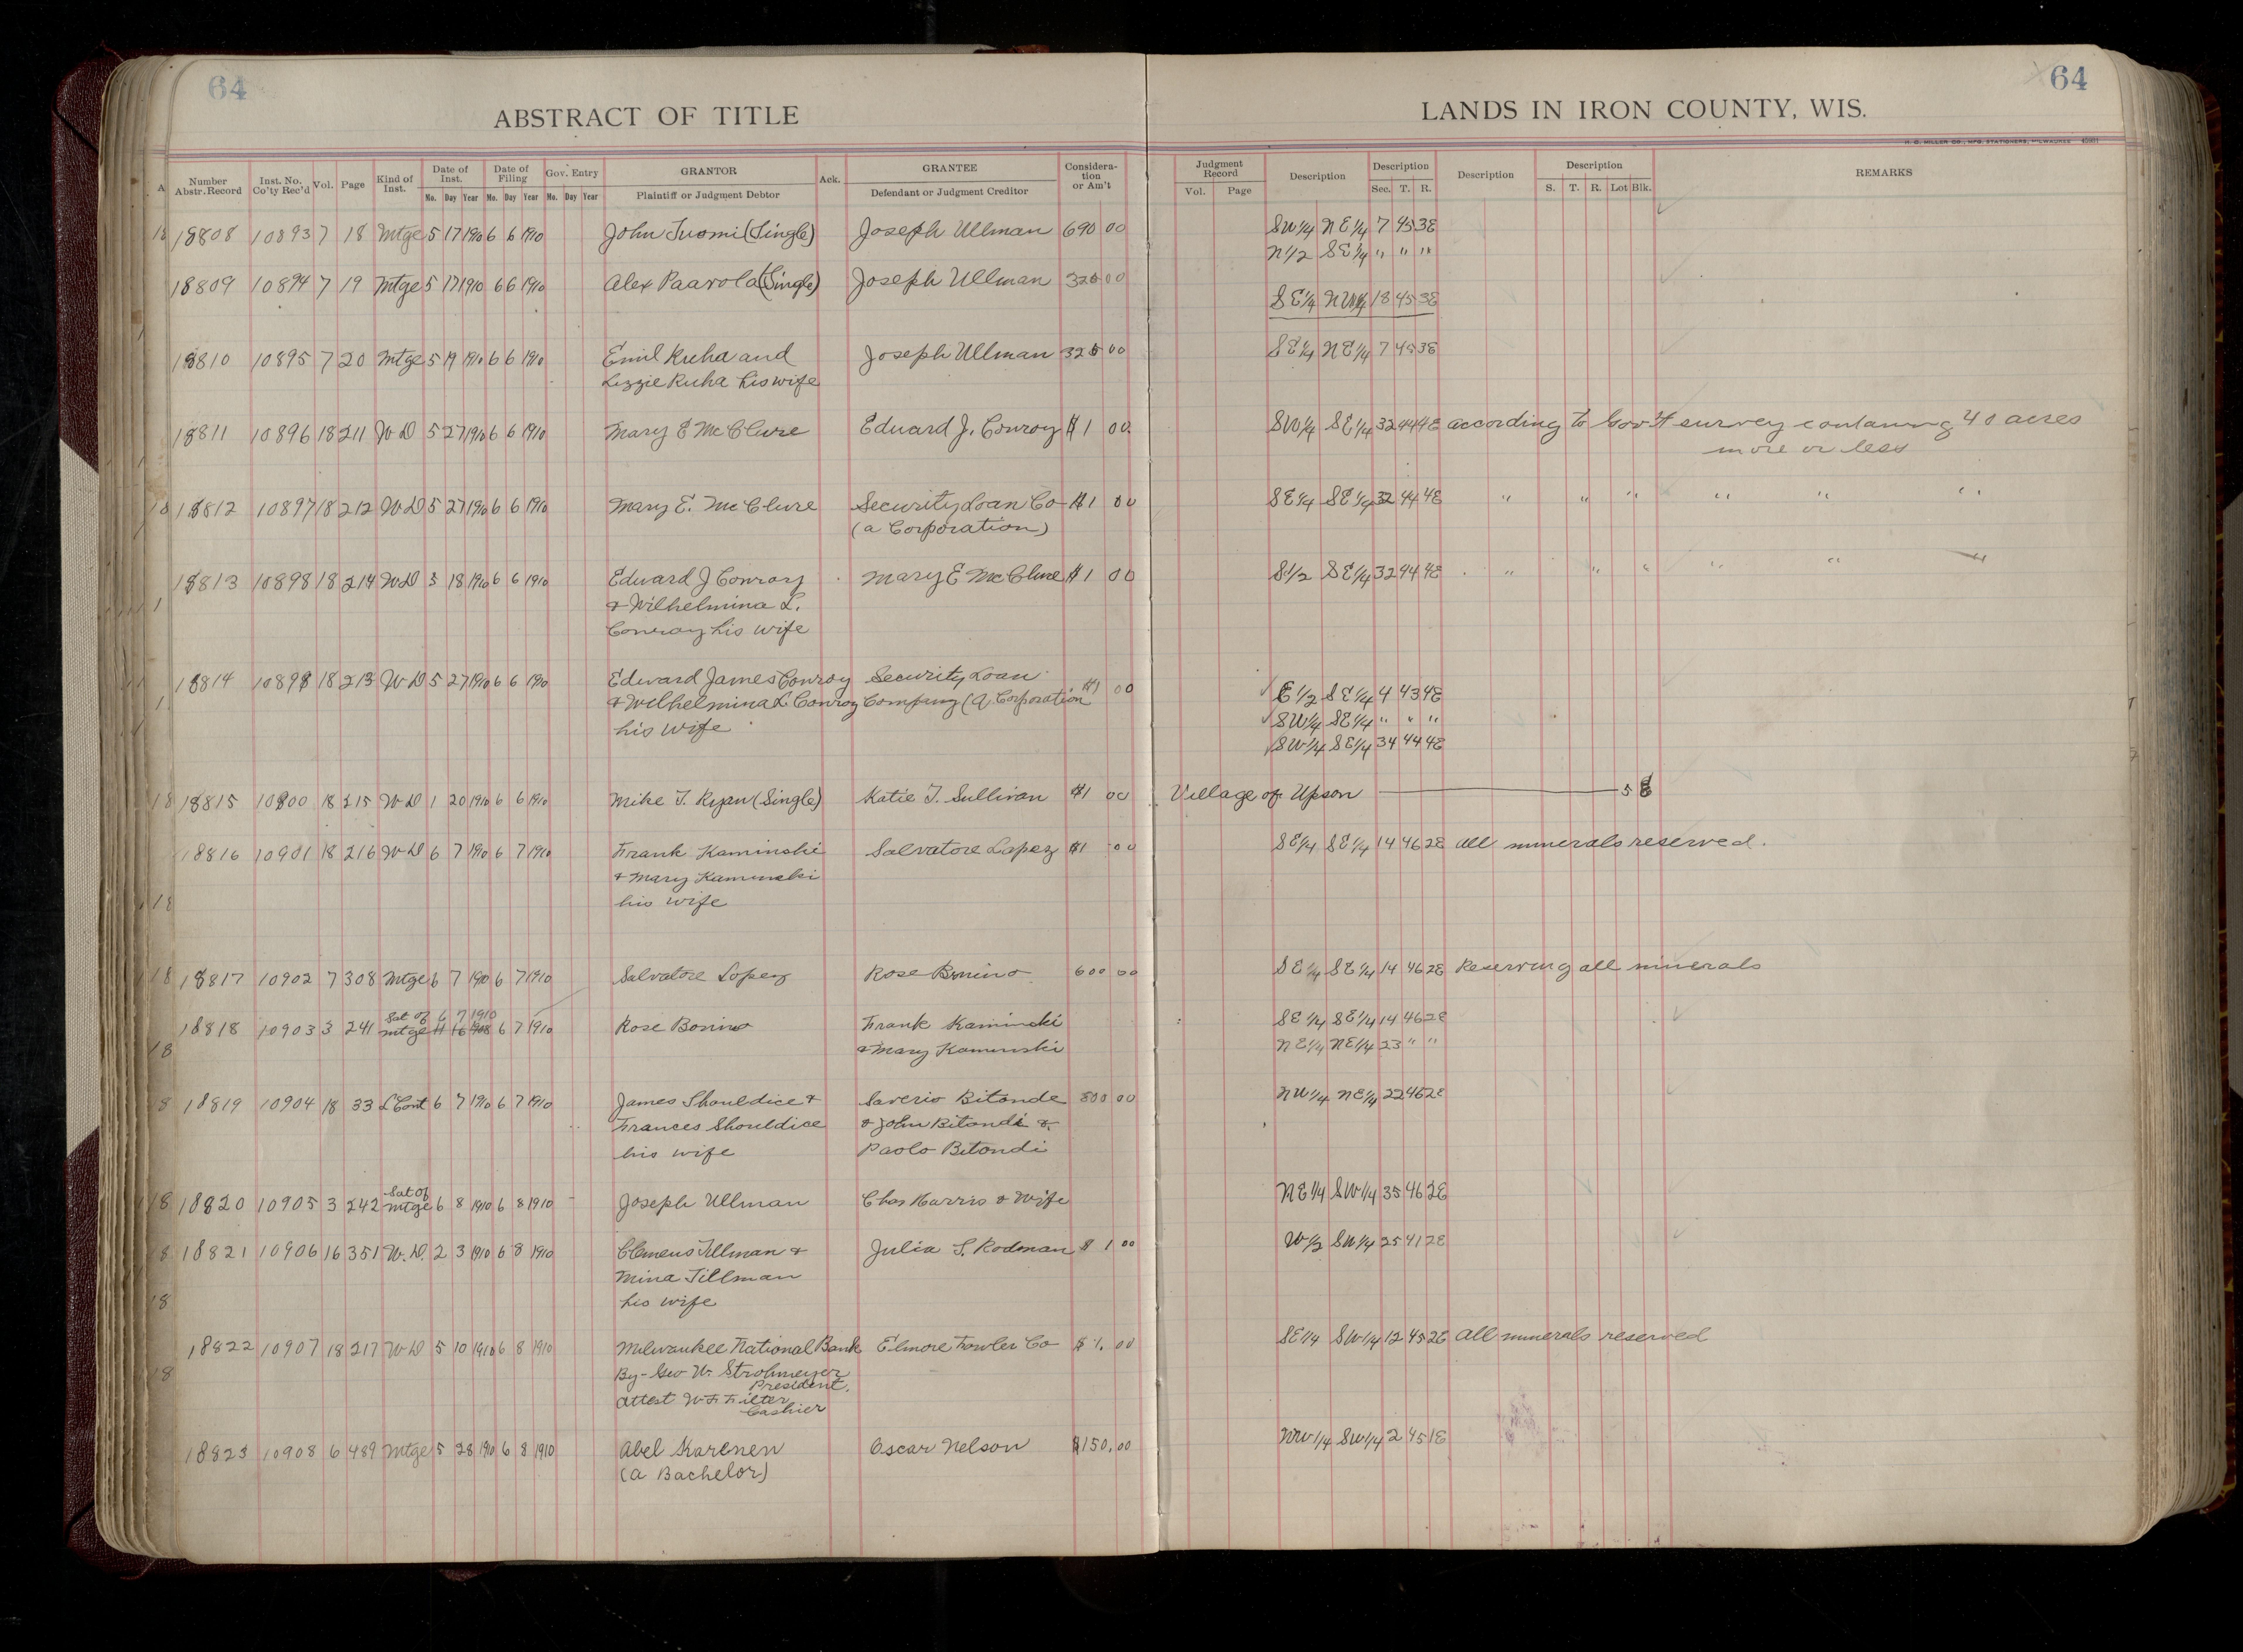 64
ABSTRACT OF TITLE
LANDS IN IRON COUNTY, WIS.
64
H. G. MILLER CO., MFG. STATIONERS, MILWAUKEE
Number Abstr. Record Inst. No. Co'ty Rec'd Vol. Page Kind of Inst. Date of Inst. Mo. Day Year Date of Filing Mo. Day Year Gov. Entry Mo. Day Year GRANTOR Plaintiff or Judgment Debtor Ack. GRANTEE Defendant or Judgment Creditor Considera- tion or Am't
Judgment Record Vol. Page Description Description Sec. T. R. Description Description S. T. R. Lot Blk. REMARKS
18808 10893 7 18 Mtge 5 17 1910 6 6 1910 John Tuomi (Single) Joseph Ullman 690 00 SW1/4 NE1/4 7 45 3E
N1/2 SE1/4 " " "
18809 10894 7 19 Mtge 5 17 1910 6 6 1910 Alex Paavola (Single) Joseph Ullman 325 00
SE1/4 NW1/4 18 45 3E
18810 10895 7 20 Mtge 5 19 1910 6 6 1910 Emil Ruha and Joseph Ullman 325 00 SE1/4 NE1/4 7 45 3E
Lizzie Ruha his wife
18811 10896 18 211 WD 5 27 1910 6 6 1910 Mary E McClure Edward J. Conroy $1 00 SW1/4 SE1/4 32 44 4E according to Gov't survey containing 40 acres
more or less
18812 10897 18 212 WD 5 27 1910 6 6 1910 Mary E. McClure Security Loan Co $1 00 SE1/4 SE1/4 32 44 4E " " " " " "
(a Corporation)
18813 10898 18 214 WD 3 18 1910 6 6 1910 Edward J Conroy Mary E McClure $1 00 S1/2 SE1/4 32 44 4E " " " " " "
& Wilhelmina L.
Conroy his wife
18814 1089 18 213 WD 5 27 1910 6 6 1910 Edward James Conroy Security Loan
& Wilhelmina L Conroy Company (A Corporation $1 00 E1/2 SE1/4 4 43 4E
his wife SW1/4 SE1/4 " " "
SW1/4 SE1/4 34 44 4E
18815 10900 18 215 WD 1 20 1910 6 6 1910 Mike T. Ryan (Single) Katie T. Sullivan $1 00 Village of Upson 5
18816 10901 18 216 WD 6 7 1910 6 7 1910 Frank Kaminski Salvatore Lopez $1 00 SE1/4 SE1/4 14 46 2E all minerals reserved.
& Mary Kaminski
his wife
18817 10902 7 308 Mtge 6 7 1910 6 7 1910 Salvatore Lopez Rose Bonino 600 00 SE1/4 SE1/4 14 46 2E Reserving all minerals
Sat of 6 7 1910
18818 10903 3 241 mtge 11 16 1908 6 7 1910 Rose Bonino Frank Kaminski SE1/4 SE1/4 14 46 2E
& Mary Kaminski NE1/4 NE1/4 23 " "
18819 10904 18 33 L Cont 6 7 1910 6 7 1910 James Shouldice & Saverio Bitonde 800 00 NW1/4 NE1/4 22 46 2E
Frances Shouldice & John Bitondi &
his wife Paolo Bitondi
Sat of
18820 10905 3 242 mtge 6 8 1910 6 8 1910 Joseph Ullman Chas Harris & Wife NE1/4 SW1/4 35 46 2E
18821 10906 16 351 W.D. 2 3 1910 6 8 1910 Clemens Tillman & Julia S. Rodman $1 00 W1/2 SW1/4 25 41 2E
Mina Tillman
his wife
18822 10907 18 217 WD 5 10 1910 6 8 1910 Milwaukee National Bank Elmore Fowler Co $1. 00 SE1/4 SW1/4 12 45 2E All minerals reserved
By- Geo W. Strohmeyer
President.
Attest W F Filter
Cashier
18823 10908 6 489 Mtge 5 28 1910 6 8 1910 Abel Karenen Oscar Nelson $150.00 NW1/4 SW1/4 2 45 1E
(a Bachelor)